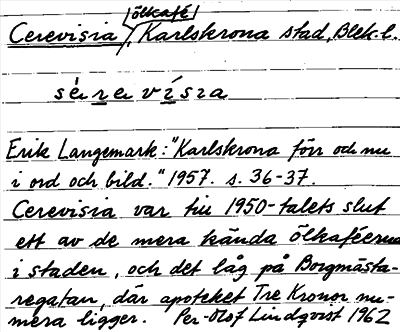 Cerevisia, ölkafé, Karlskrona stad, Blek. l.
sèrevísia
Erik Langemark: "Karlskrona förr och nu
i ord och bild." 1957. s. 36-37.
Cerevisia var till 1950-talets slut
ett av de mera kända ölkaféerna
i staden, och det låg på Borgmästa-
regatan, där apoteket Tre Kronor nu-
mera ligger. Per-Olof Lindqvist 1962